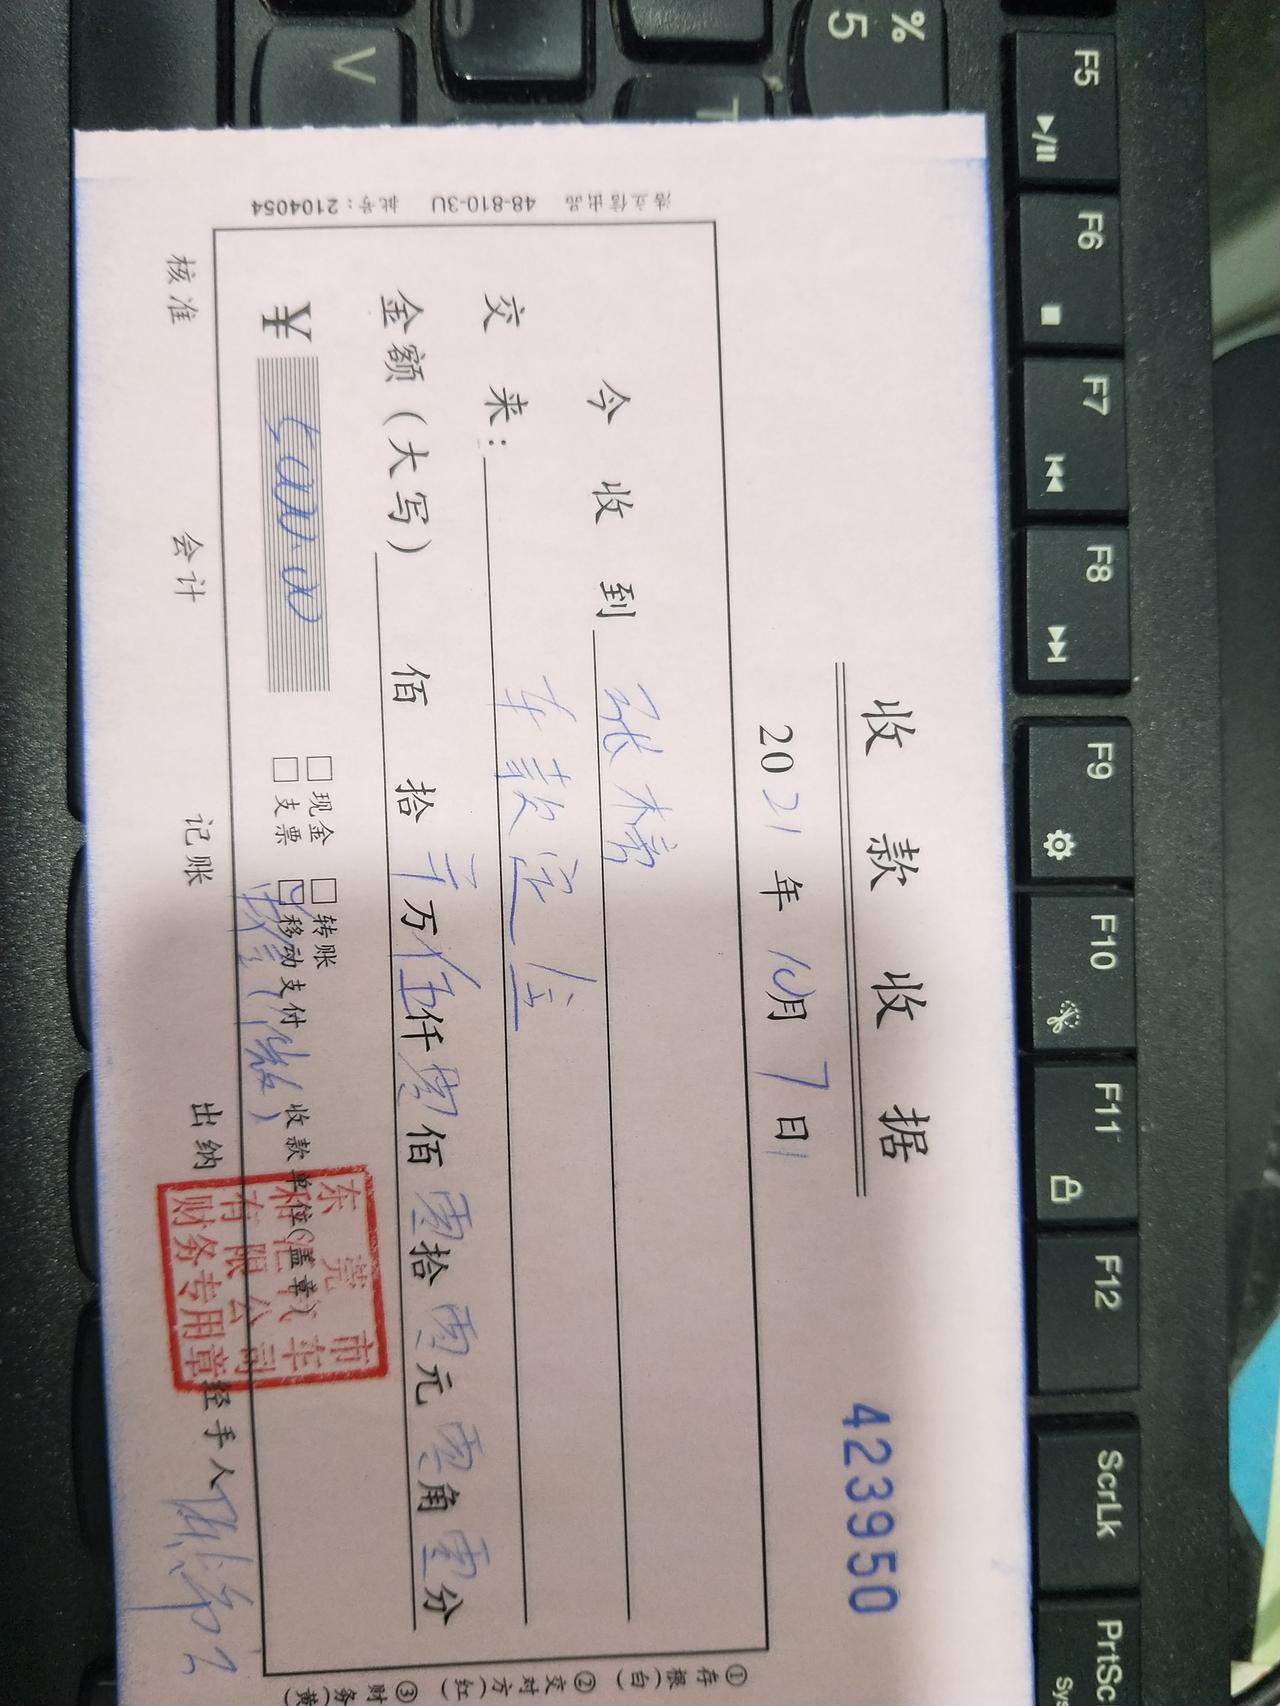 收款收据
423950
2021年10月7日
今收到 张
交来: 车款定金
金额(大写) 佰 拾 万伍仟零佰零拾零元零角零分
¥ 5000.00
现金 转账
支票 移动支付
收款单位(盖章)
核准 会计 记账 出纳 经手人
东莞市
有限公司
财务专用章
①存根(白) ②交对方(红) ③财务(黄
浩立信出品 48-810-3U 批号:2104054
% 5
V
T
F5
F6
F7
F8
F9
F10
F11
F12
ScrLk
PrtSc
Sys